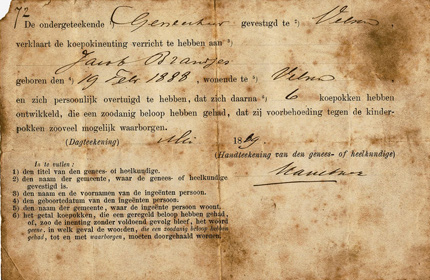 72
De ondergeteekende ¹) Geneesheer gevestigd te ²) Velsen
verklaart de koepokinenting verricht te hebben aan ³)
Jacob Brandjes
geboren den ⁴) 19 Febr 1888, wonende te ⁵) Velsen
en zich persoonlijk overtuigd te hebben, dat zich daarna ⁶) 6 koepokken hebben
ontwikkeld, die een zoodanig beloop hebben gehad, dat zij voorbehoeding tegen de kinder-
pokken zooveel mogelijk waarborgen.
(Dagteekening) Mei 1889
(Handteekening van den genees- of heelkundige)
In te vullen:
1) den titel van den genees- of heelkundige.
2) den naam der gemeente, waar de genees- of heelkundige
gevestigd is.
3) den naam en de voornamen van de ingeënten persoon.
4) den geboortedatum van den ingeënten persoon.
5) den naam der gemeente, waar de ingeënte persoon woont.
6) het getal koepokken, die een geregeld beloop hebben gehad,
of, zoo de inenting zonder voldoend gevolg bleef, het woord
geene, in welk geval de woorden, die een zoodanig beloop hebben
gehad, tot en met waarborgen, moeten doorgehaald worden.